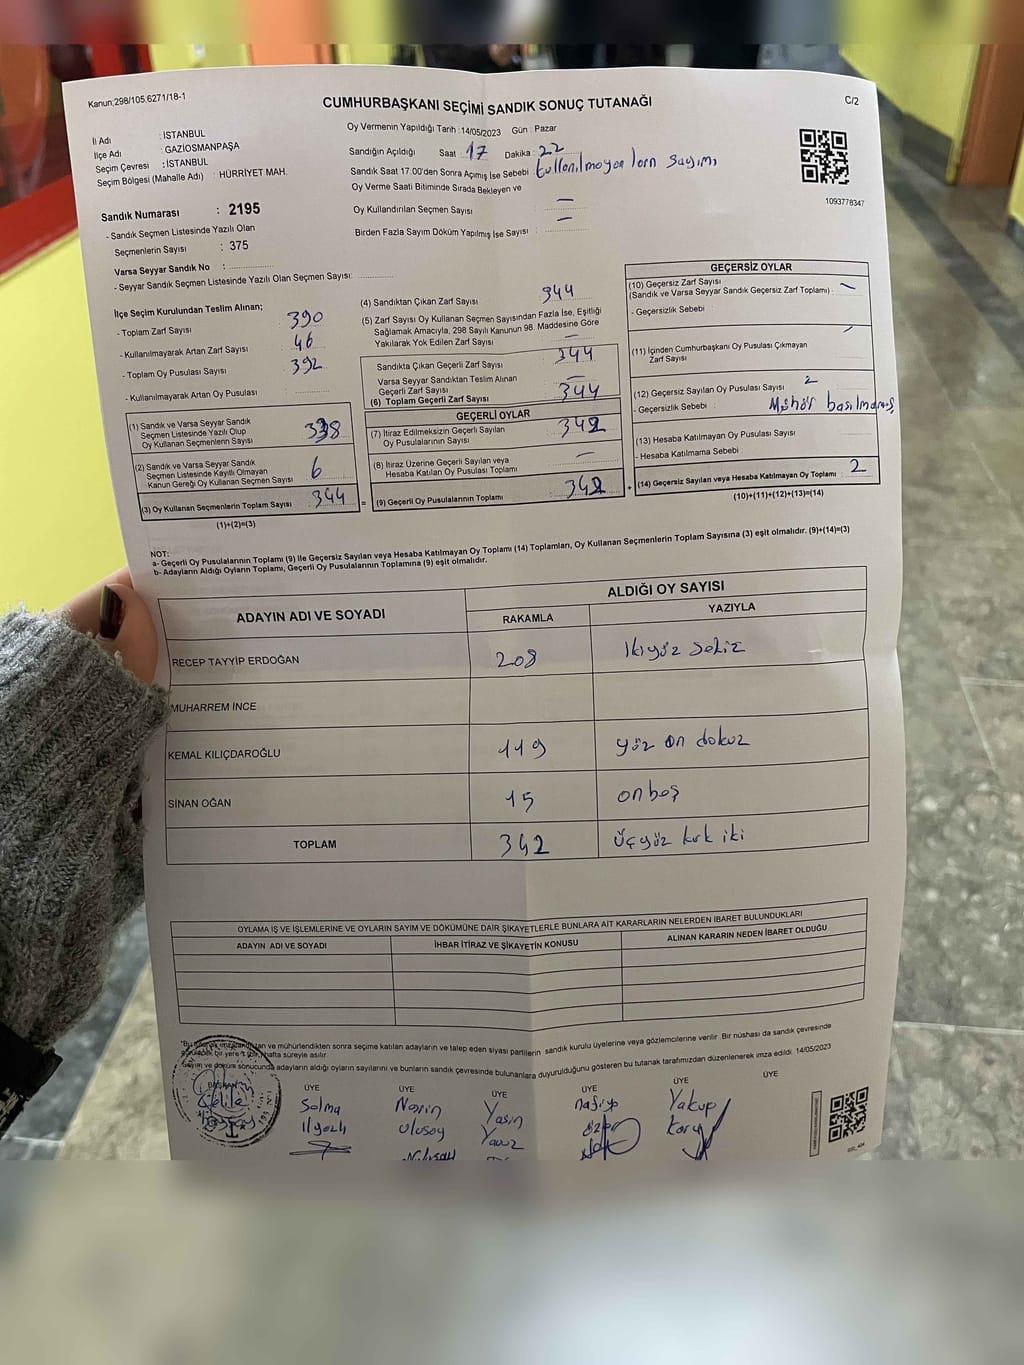 Kanun;298/105.6271/18-1
CUMHURBAŞKANI SEÇİMİ SANDIK SONUÇ TUTANAĞI
C/2
İl Adı : İSTANBUL
İlçe Adı : GAZİOSMANPAŞA
Seçim Çevresi : İSTANBUL
Seçim Bölgesi (Mahalle Adı) : HÜRRİYET MAH.
Oy Vermenin Yapıldığı Tarih :14/05/2023 Gün : Pazar
Sandığın Açıldığı Saat 17 Dakika : 22
Sandık Saat 17.00'den Sonra Açımış İse Sebebi : kullanılmayanların sayımı
Oy Verme Saati Bitiminde Sırada Bekleyen ve
Oy Kullandırılan Seçmen Sayısı : —
Birden Fazla Sayım Döküm Yapılmış İse Sayısı : —
1093778347
Sandık Numarası : 2195
- Sandık Seçmen Listesinde Yazılı Olan
Seçmenlerin Sayısı : 375
Varsa Seyyar Sandık No :
- Seyyar Sandık Seçmen Listesinde Yazılı Olan Seçmen Sayısı:
İlçe Seçim Kurulundan Teslim Alınan;
- Toplam Zarf Sayısı 390
- Kullanılmayarak Artan Zarf Sayısı : 46
- Toplam Oy Pusulası Sayısı : 392
- Kullanılmayarak Artan Oy Pusulası :
(1) Sandık ve Varsa Seyyar Sandık
Seçmen Listesinde Yazılı Olup
Oy Kullanan Seçmenlerin Sayısı 338
(2) Sandık ve Varsa Seyyar Sandık
Seçmen Listesinde Kayıtlı Olmayan
Kanun Gereği Oy Kullanan Seçmen Sayısı 6
(3) Oy Kullanan Seçmenlerin Toplam Sayısı : 344
(1)+(2)=(3)
(4) Sandıktan Çıkan Zarf Sayısı 344
(5) Zarf Sayısı Oy Kullanan Seçmen Sayısından Fazla İse, Eşitliği
Sağlamak Amacıyla, 298 Sayılı Kanunun 98. Maddesine Göre
Yakılarak Yok Edilen Zarf Sayısı : —
Sandıkta Çıkan Geçerli Zarf Sayısı : 344
Varsa Seyyar Sandıktan Teslim Alınan
Geçerli Zarf Sayısı : —
(6) Toplam Geçerli Zarf Sayısı : 344
GEÇERLİ OYLAR
(7) İtiraz Edilmeksizin Geçerli Sayılan
Oy Pusulalarının Sayısı : 342
(8) İtiraz Üzerine Geçerli Sayılan veya
Hesaba Katılan Oy Pusulası Toplamı : —
= (9) Geçerli Oy Pusulalarının Toplamı : 342
GEÇERSİZ OYLAR
(10) Geçersiz Zarf Sayısı
(Sandık ve Varsa Seyyar Sandık Geçersiz Zarf Toplamı) : —
- Geçersizlik Sebebi :
(11) İçinden Cumhurbaşkanı Oy Pusulası Çıkmayan
Zarf Sayısı
(12) Geçersiz Sayılan Oy Pusulası Sayısı : 2
- Geçersizlik Sebebi : Mühür basılmamış
(13) Hesaba Katılmayan Oy Pusulası Sayısı
- Hesaba Katılmama Sebebi :
+ (14) Geçersiz Sayılan veya Hesaba Katılmayan Oy Toplamı : 2
(10)+(11)+(12)+(13)=(14)
NOT:
a- Geçerli Oy Pusulalarının Toplamı (9) ile Geçersiz Sayılan veya Hesaba Katılmayan Oy Toplamı (14) Toplamları, Oy Kullanan Seçmenlerin Toplam Sayısına (3) eşit olmalıdır. (9)+(14)=(3)
b- Adayların Aldığı Oyların Toplamı, Geçerli Oy Pusulalarının Toplamına (9) eşit olmalıdır.
ADAYIN ADI VE SOYADI
ALDIĞI OY SAYISI
RAKAMLA YAZIYLA
RECEP TAYYİP ERDOĞAN 208 İkiyüz sekiz
MUHARREM İNCE
KEMAL KILIÇDAROĞLU 119 yüz on dokuz
SİNAN OĞAN 15 onbeş
TOPLAM 342 üçyüz kırk iki
OYLAMA İŞ VE İŞLEMLERİNE VE OYLARIN SAYIM VE DÖKÜMÜNE DAİR ŞİKAYETLERLE BUNLARA AİT KARARLARIN NELERDEN İBARET BULUNDUKLARI
ADAYIN ADI VE SOYADI İHBAR İTİRAZ VE ŞİKAYETİN KONUSU ALINAN KARARIN NEDEN İBARET OLDUĞU
ve mühürlendikten sonra seçime katılan adayların ve talep eden siyasi partilerin sandık kurulu üyelerine veya gözlemcilerine verilir. Bir nüshası da sandık çevresinde
bir yere 1 hafta süreyle asılır.
Sayım ve döküm sonucunda adayların aldığı oyların sayılarını ve bunların sandık çevresinde bulunanlara duyurulduğunu gösteren bu tutanak tarafımızdan düzenlenerek imza edildi. 14/05/2023
BAŞKAN ÜYE ÜYE ÜYE ÜYE ÜYE ÜYE
Selma Nasin Yasin Nafiye Yakup
Ilgazlı Ulusoy Yavuz Özlen Koray